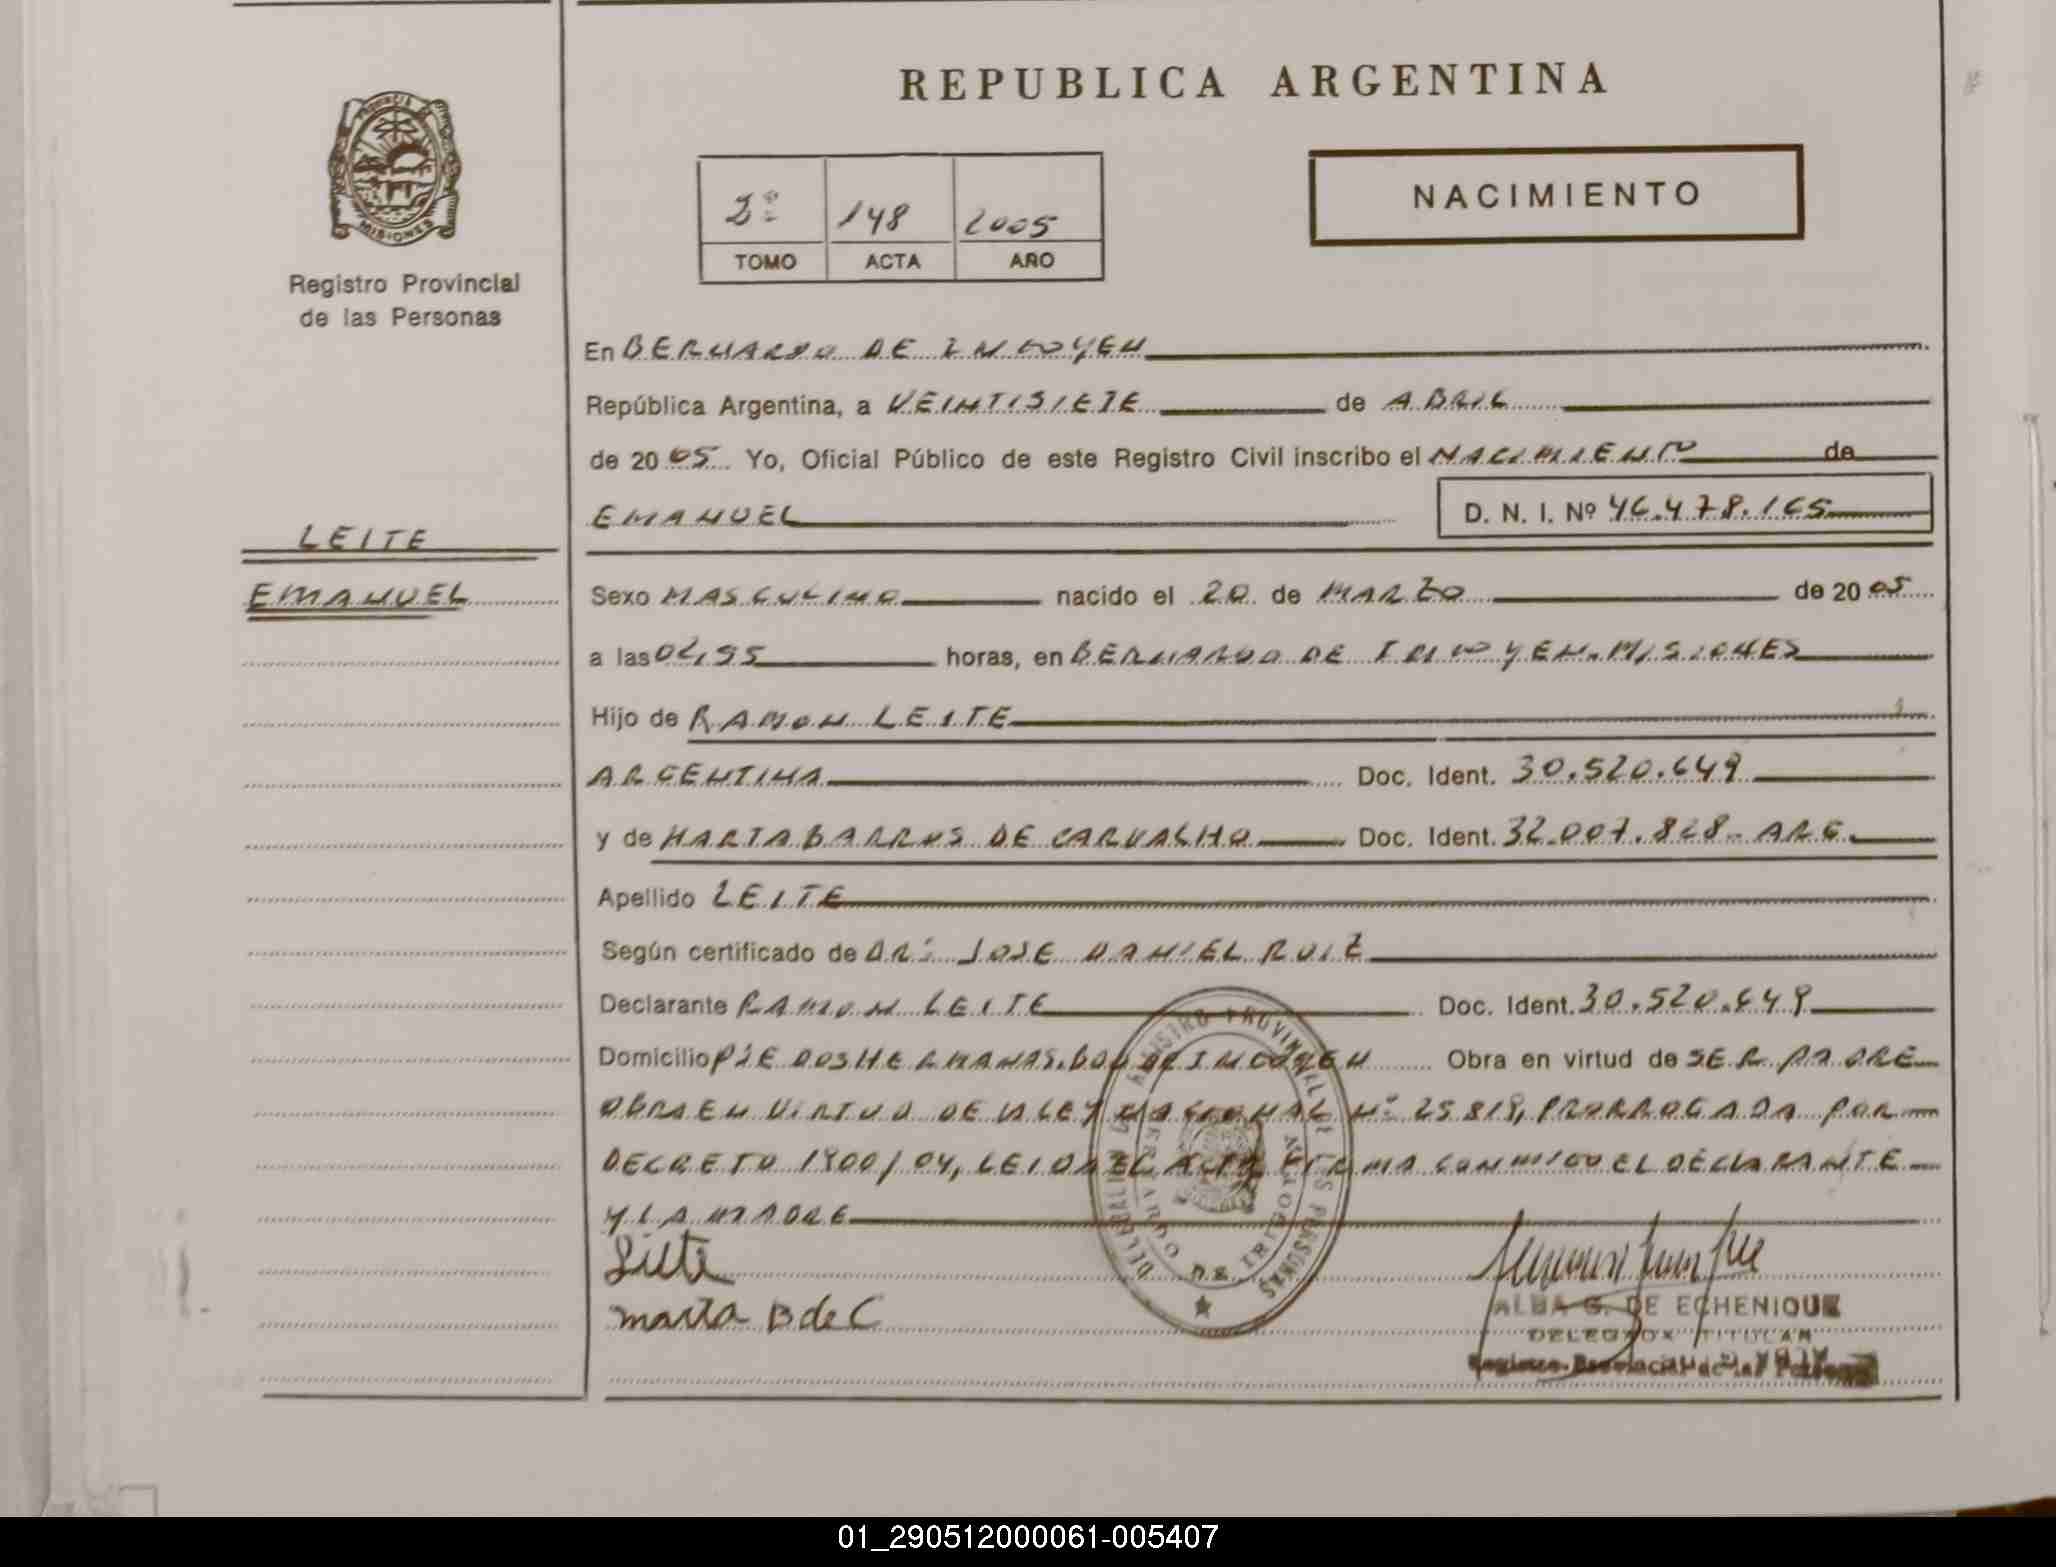 REPUBLICA ARGENTINA
PROVINCIA DE MISIONES
Registro Provincial
de las Personas
148 2005
TOMO ACTA AÑO
NACIMIENTO
En BERNARDO DE IRIGOYEN
República Argentina, a VEINTISIETE de ABRIL
de 2005 Yo, Oficial Público de este Registro Civil inscribo el NACIMIENTO de
EMANUEL D. N. I. Nº 46.478.165
LEITE
EMANUEL
Sexo MASCULINO nacido el 20 de MARZO de 2005
a las horas, en BERNARDO DE IRIGOYEN. MISIONES
Hijo de RAMON LEITE
ARGENTINA Doc. Ident. 30.520.649
y de MARTA BARROS DE CARVALHO Doc. Ident. 32.007.828 - ARG.
Apellido LEITE
Según certificado de DR: JOSE DANIEL RUIZ
Declarante RAMON LEITE Doc. Ident. 30.520.649
Domicilio PJE DOS HERMANAS. BDO DE IRIGOYEN Obra en virtud de SER PADRE
OBRA EN VIRTUD DE LA LEY NACIONAL Nº 25.819, PRORROGADA POR
DECRETO 1900/04, LEIDA EL ACTA FIRMA CONMIGO EL DECLARANTE
Y LA MADRE
DELEGACION DEL REGISTRO PROVINCIAL DE LAS PERSONAS
BERNARDO DE IRIGOYEN
Leite
marta B de C
ALBA G. DE ECHENIQUE
DELEGADA TITULAR
Registro Provincial de las Personas
01_290512000061-005407